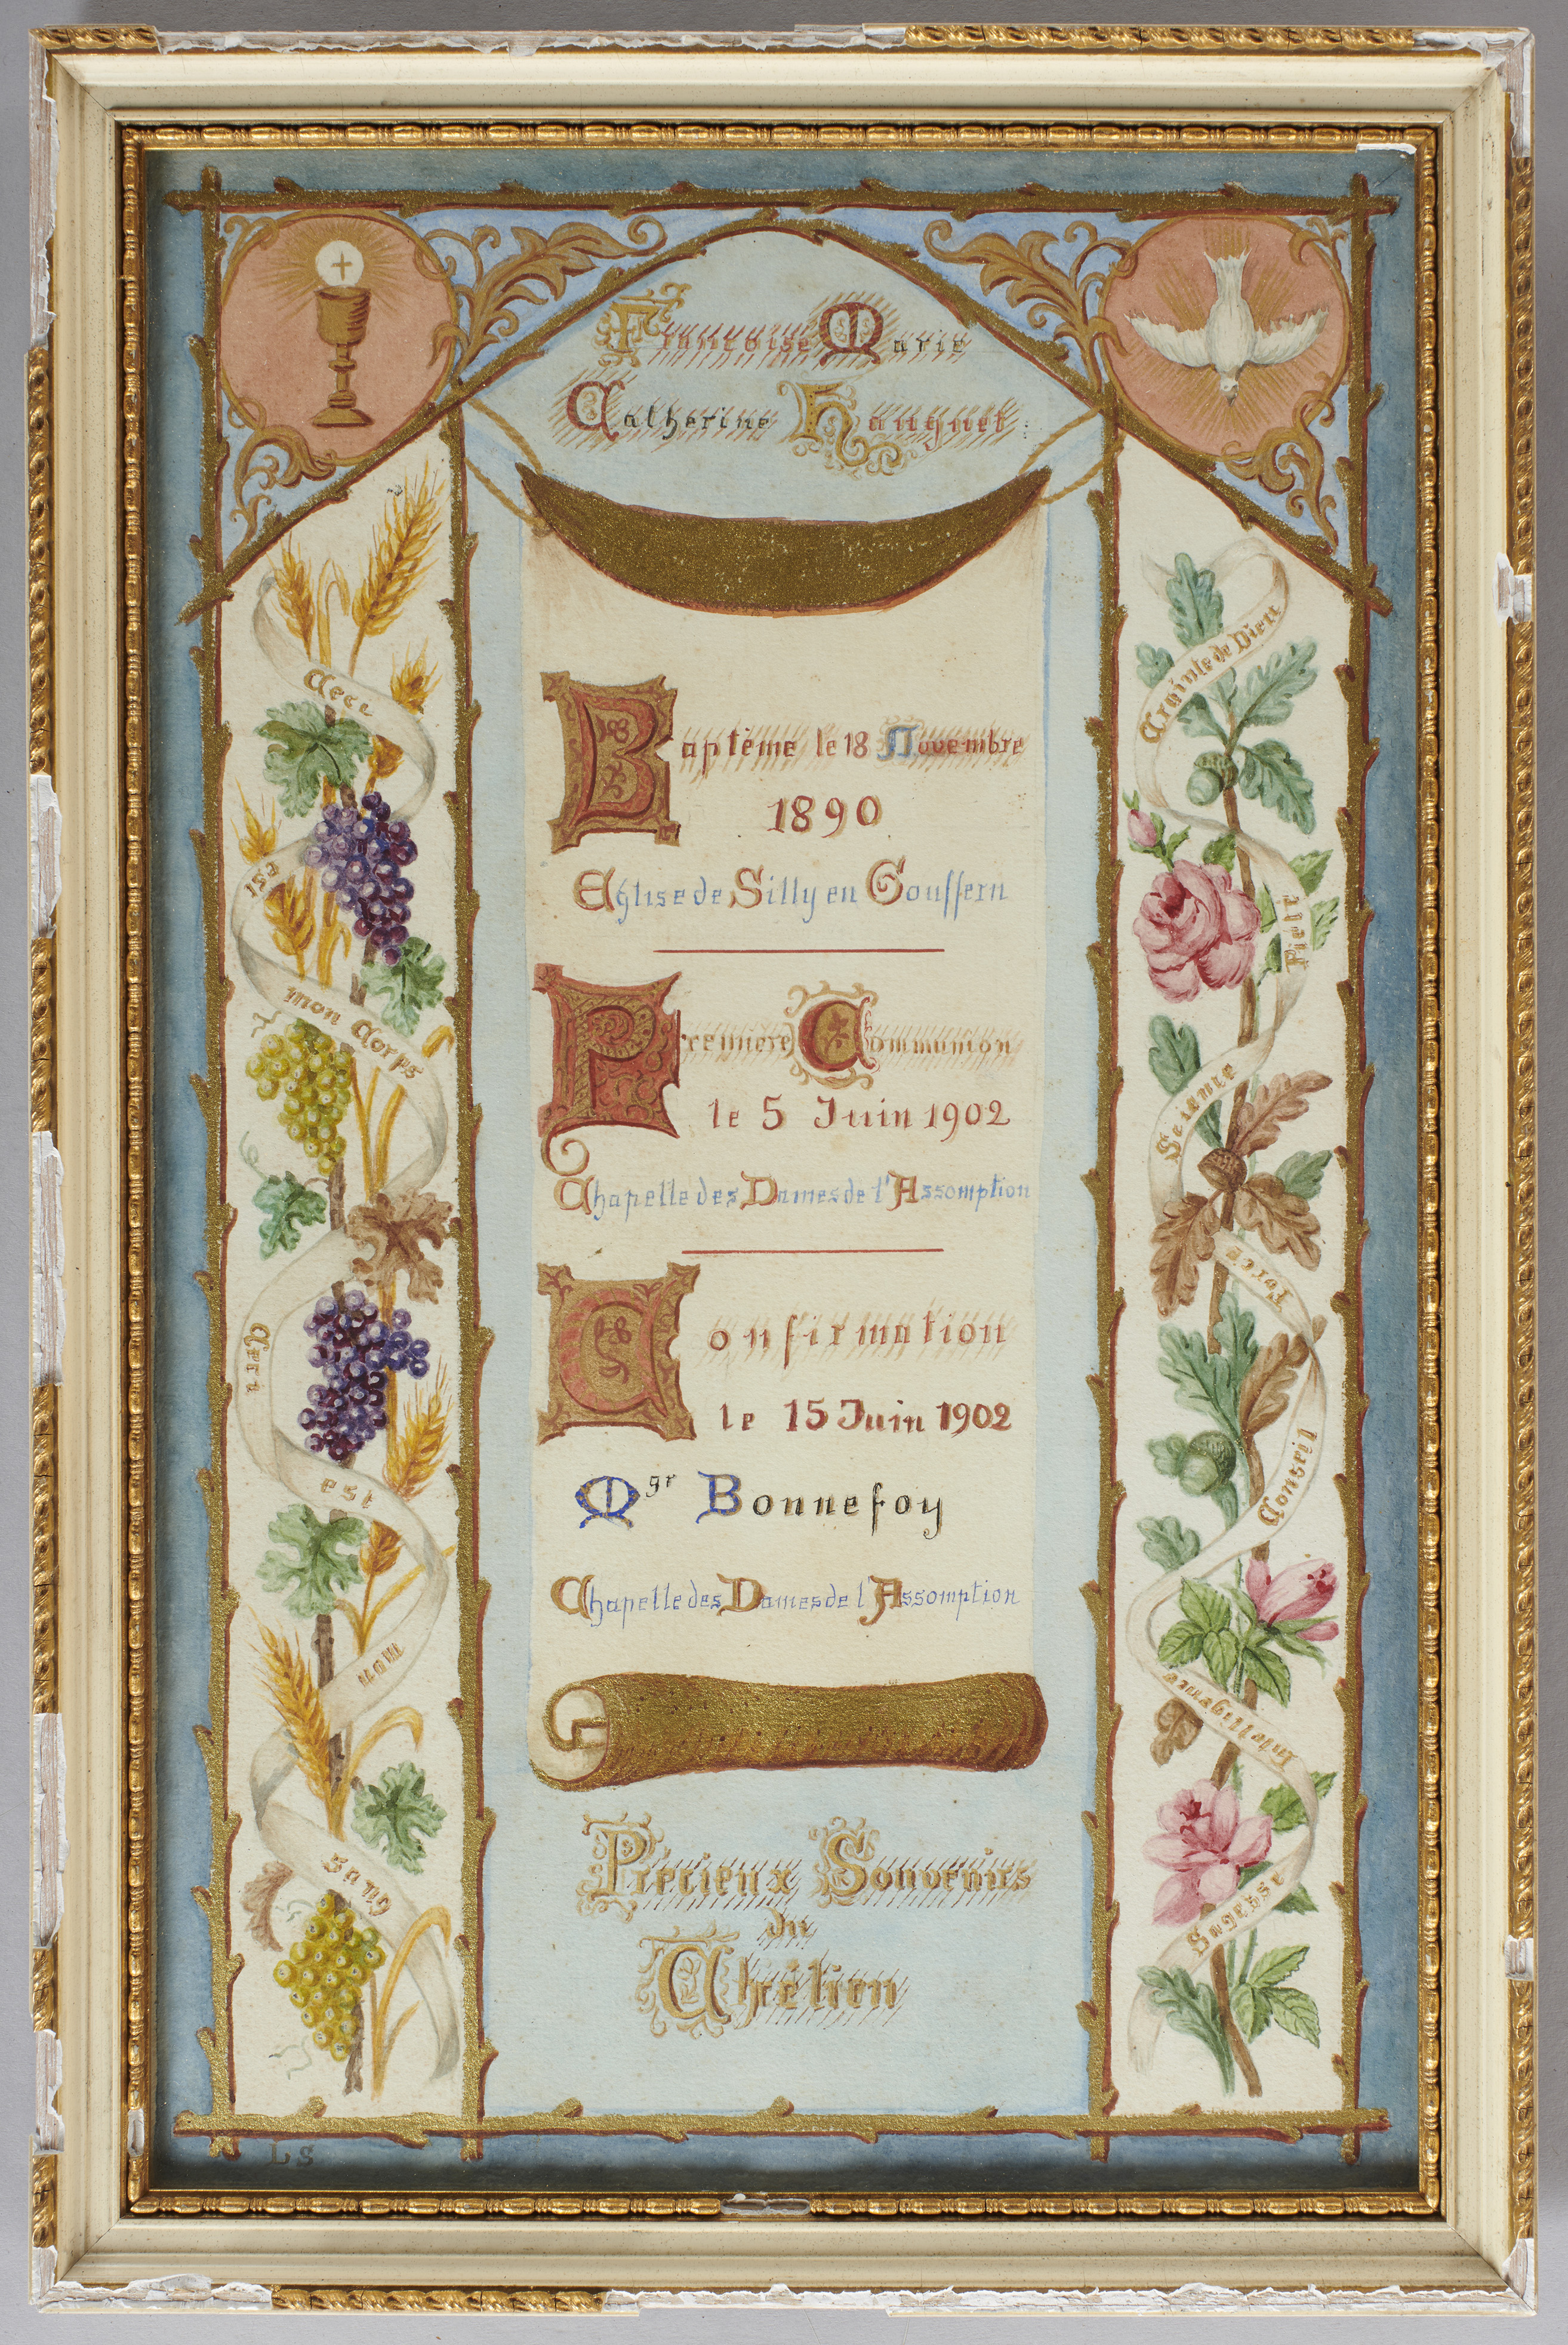 Françoise Marie
Catherine Hauguet:
Baptême le 18 Novembre
1890
Eglise de Silly en Gouffern
Première Communion
le 5 Juin 1902
Chapelle des Dames de l'Assomption
Confirmation
le 15 Juin 1902
Mgr Bonnefoy
Chapelle des Dames de l'Assomption
Précieux Souvenirs
du
Chrétien
Ceci
est
mon Corps
Ceci
est
mon
sang
Crainte de Dieu
Piété
Science
Force
Conseil
Intelligence
Sagesse
LS